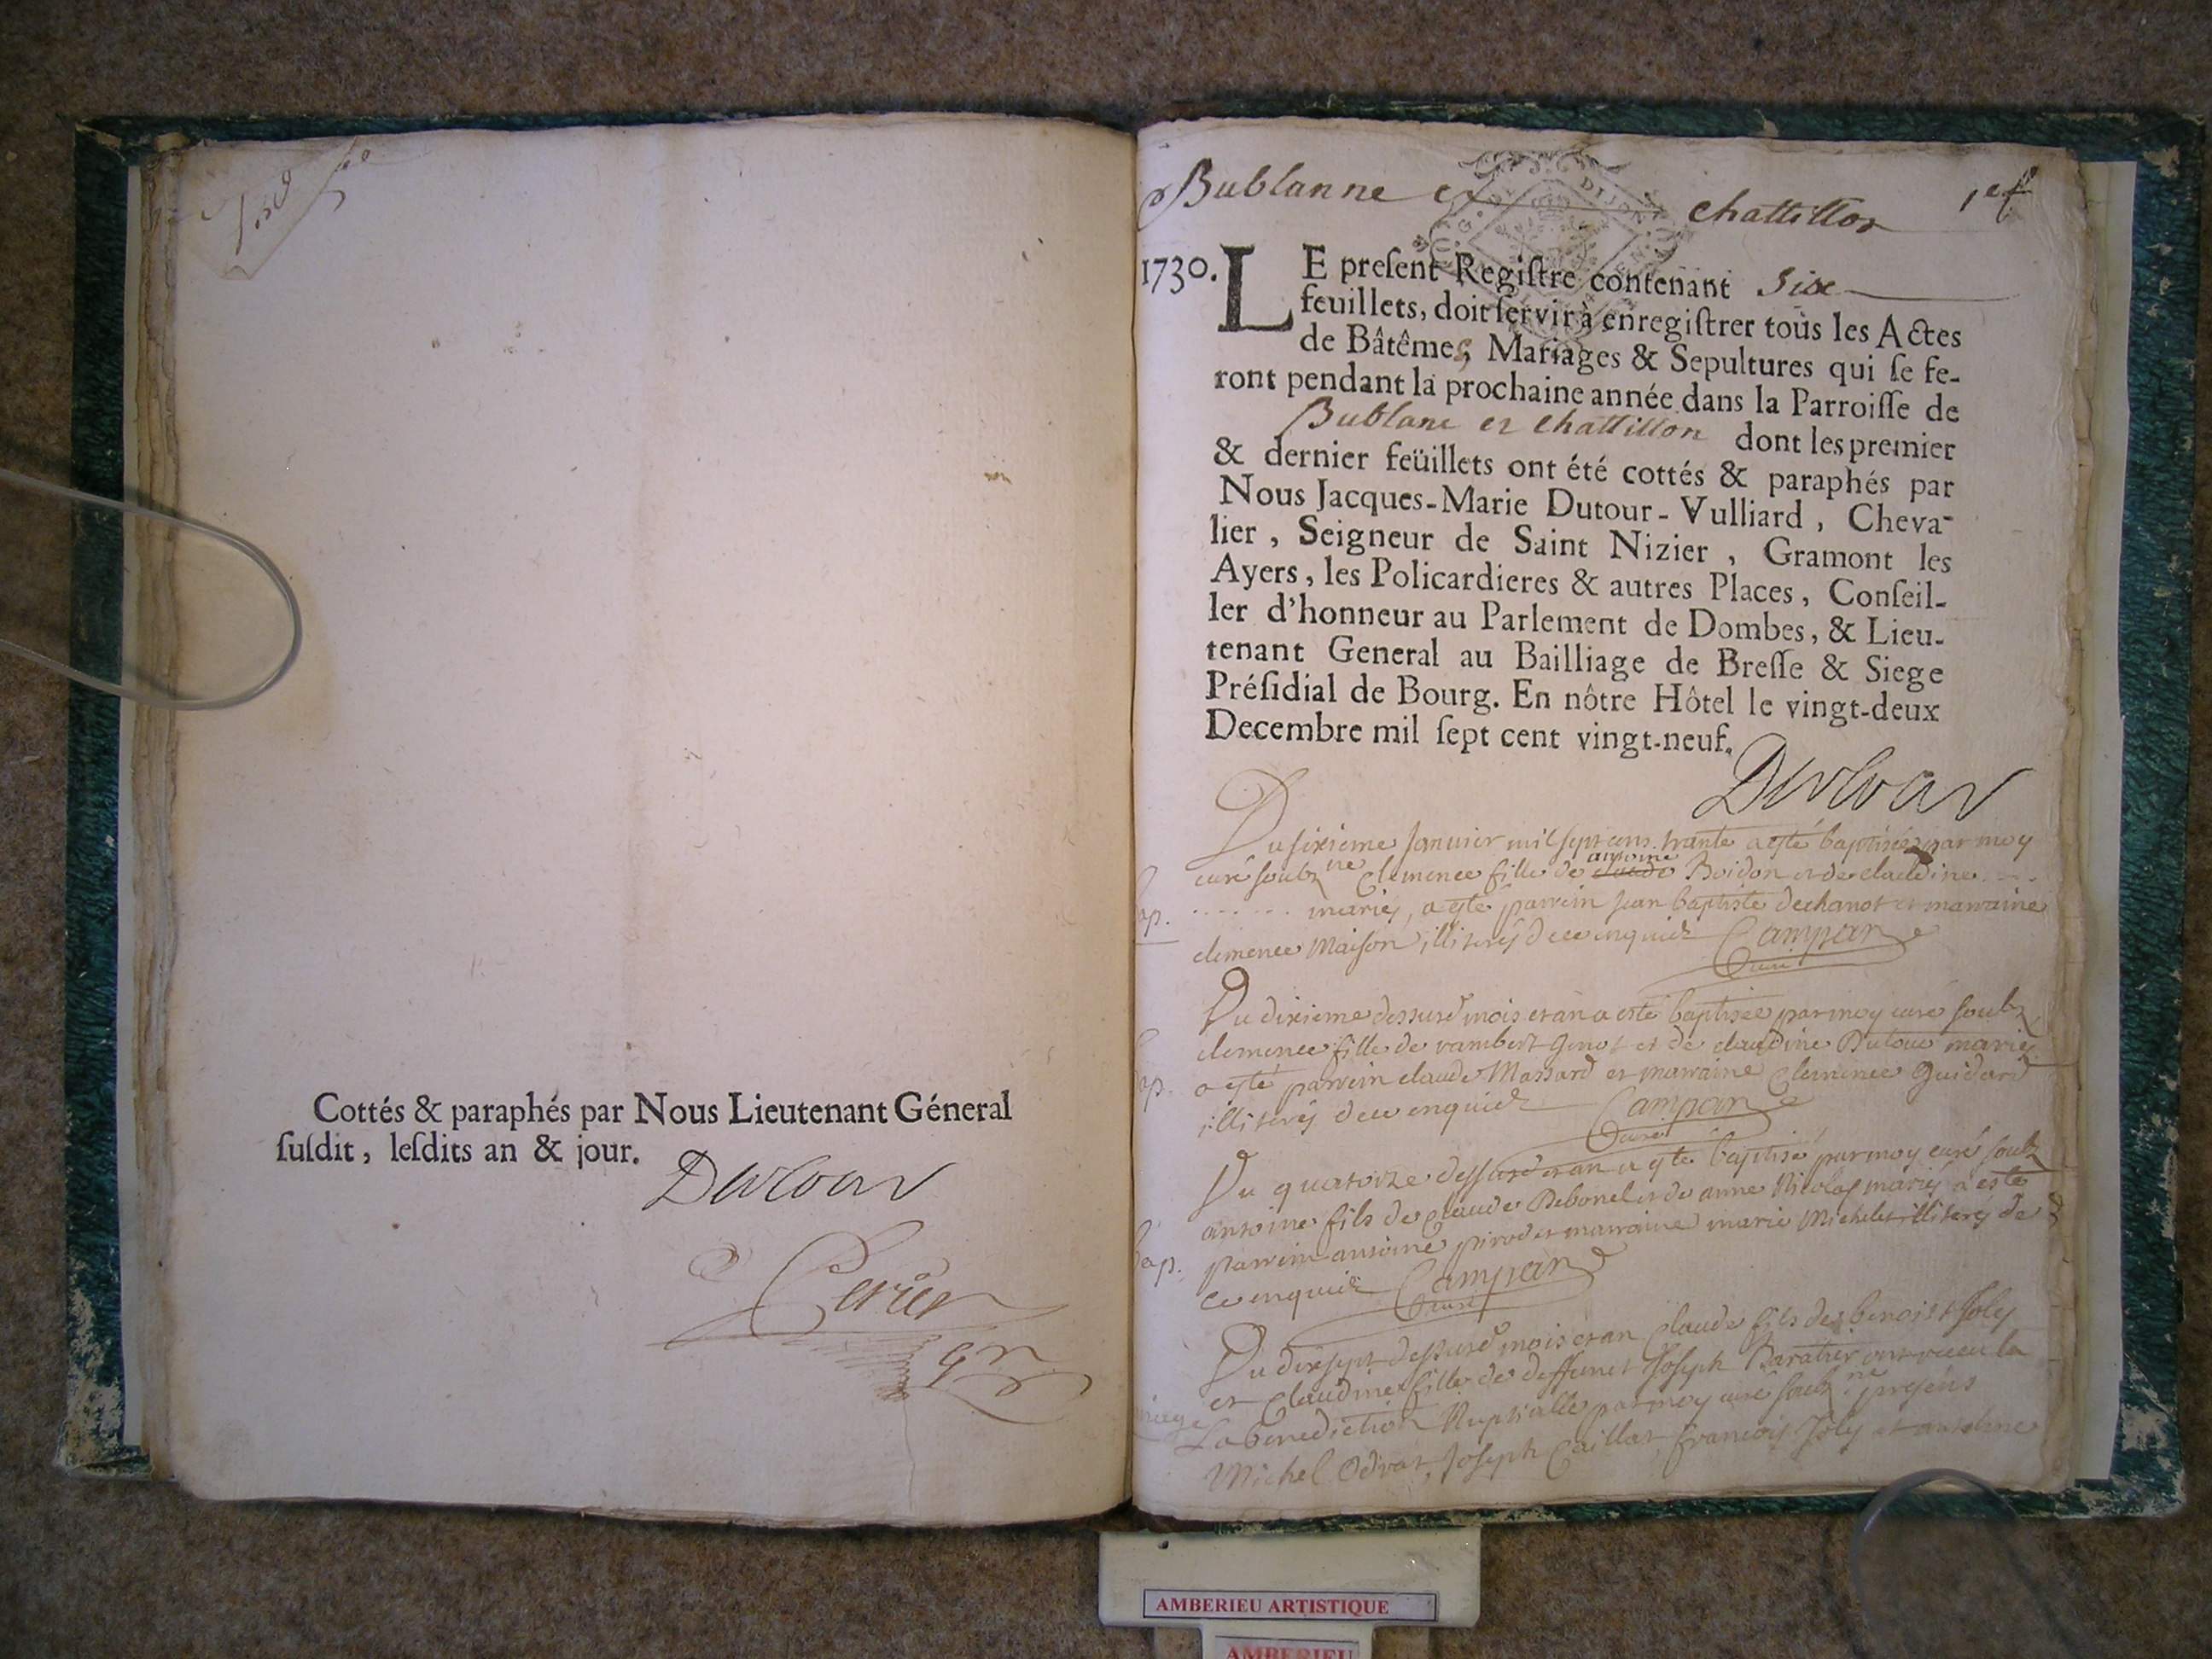 Cottés & paraphés par Nous Lieutenant Géneral
ſuſdit, leſdits an & jour.
Dutour
Bublanne et chattillon 1er f
1730.
LE preſent Regiſtre contenant Six
feuillets, doit ſervir à enregiſtrer tous les Actes
de Bâtêmes, Mariages & Sepultures qui ſe fe-
ront pendant la prochaine année dans la Parroiſſe de
Bublane et Chattillon dont les premier
& dernier feüillets ont été cottés & paraphés par
Nous Jacques-Marie Dutour-Vulliard, Cheva-
lier, Seigneur de Saint Nizier, Gramont les
Ayers, les Policardieres & autres Places, Conſeil-
ler d'honneur au Parlement de Dombes, & Lieu-
tenant General au Bailliage de Breſſe & Siege
Préſidial de Bourg. En nôtre Hôtel le vingt-deux
Decembre mil ſept cent vingt-neuf.
Dutour
Du sixieme Janvier mil sept cens trante a esté baptisée par moy
curé soubzne Clemence fille de antoine Boidon et de claudine
bap. mariés, a esté parrein Jean baptiste dechanot et marraine
clemence Maison illiterés de ce enquis Campan
Curé
Du dixieme dessusd mois et an a esté baptisée par moy curé soubz
clemence fille de rambert Genot et de claudine Dutour mariés
bap. a esté parrein claude Massard et marraine Clemence Guidard
illiterés de ce enquis Campan
Curé
Du quatorze dessusd et an a esté baptisé par moy curé soubz
antoine fils de Claude Debonel et de anne Nicolas mariés a este
bap. parrein antoine pirod et marraine marie Michelet illiterés de
ce enquis Campan
Curé
Du dixsept dessusd mois et an Claude fils de benoist Joly
et Claudine fille de deffunct Joseph Baratier ont receu la
La benediction Nuptialle par moy curé soubzne presens
Michel Odrat, Joseph Caillat, francois Joly et antoine
AMBERIEU ARTISTIQUE
AMBERIEU